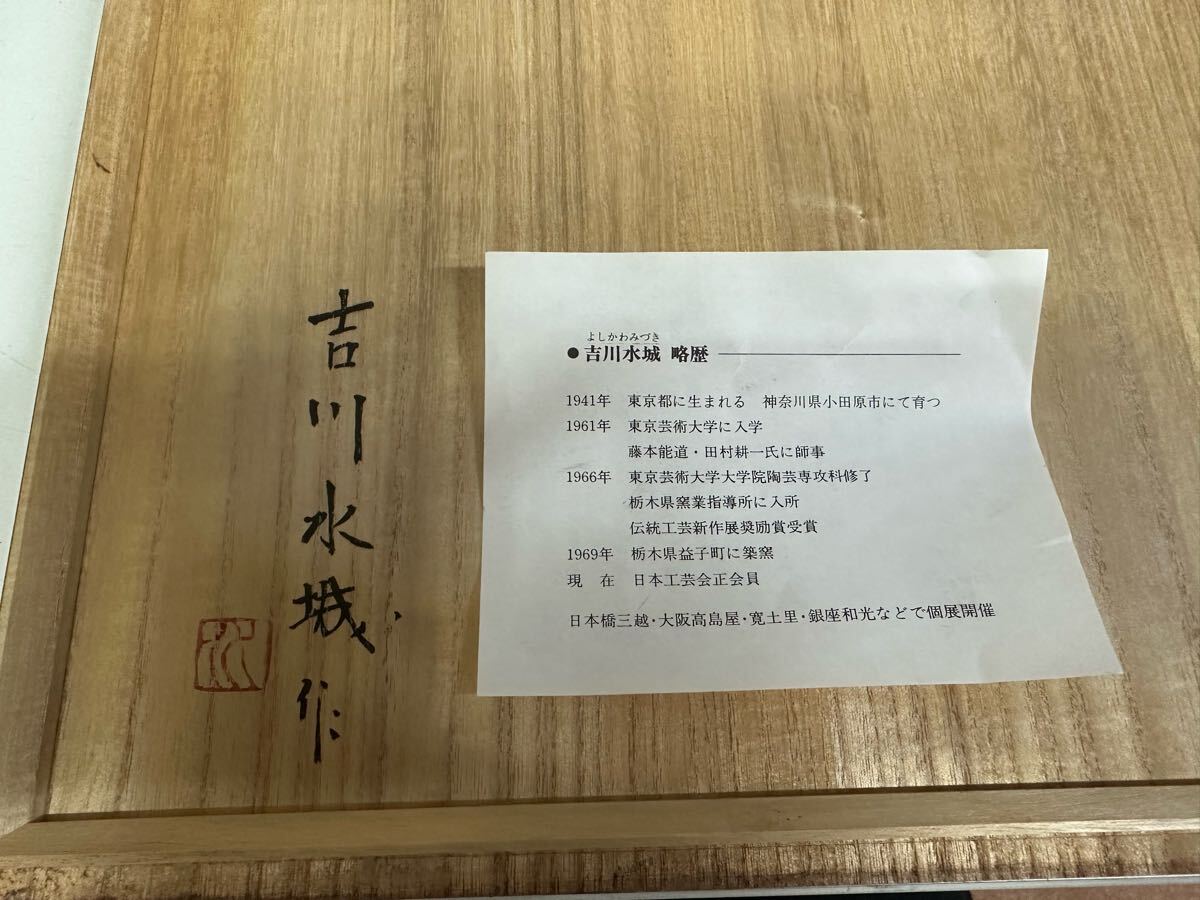 吉川水城作
水
よしかわみづき
●吉川水城 略歴
1941年 東京都に生まれる 神奈川県小田原市にて育つ
1961年 東京芸術大学に入学
藤本能道・田村耕一氏に師事
1966年 東京芸術大学大学院陶芸専攻科修了
栃木県窯業指導所に入所
伝統工芸新作展奨励賞受賞
1969年 栃木県益子町に築窯
現 在 日本工芸会正会員
日本橋三越・大阪高島屋・寛土里・銀座和光などで個展開催